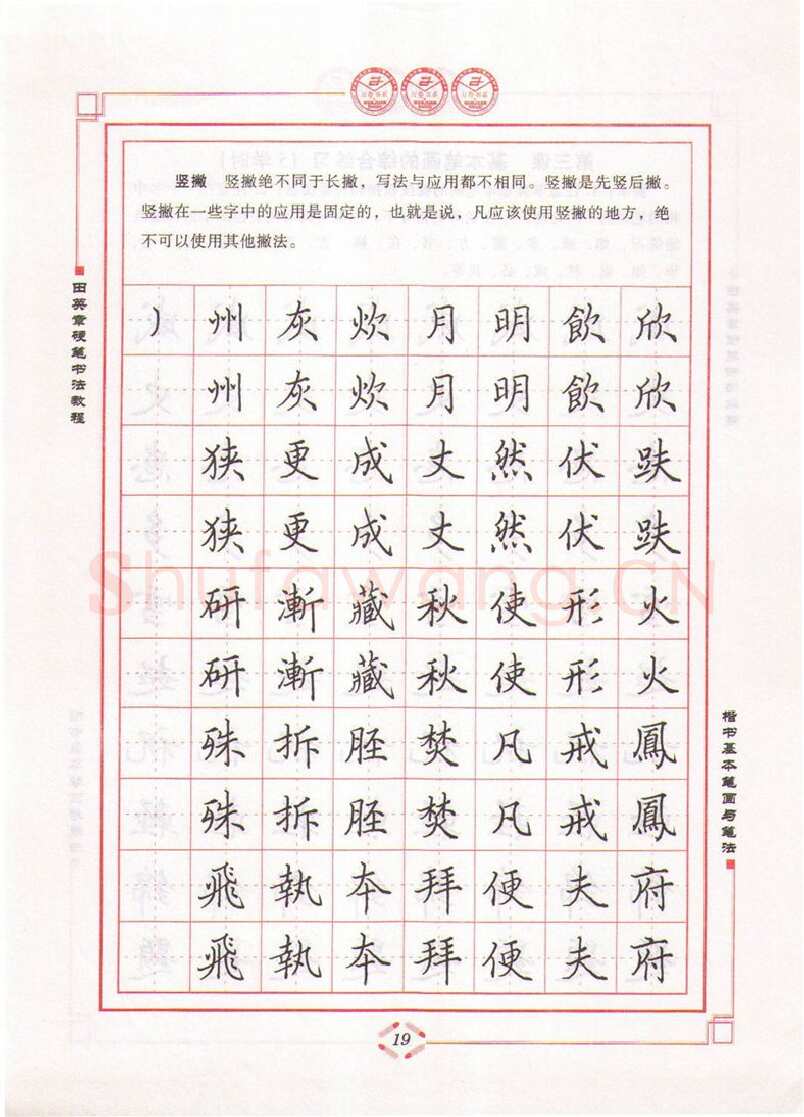 竖撇　竖撇绝不同于长撇，写法与应用都不相同。竖撇是先竖后撇。
竖撇在一些字中的应用是固定的，也就是说，凡应该使用竖撇的地方，绝
不可以使用其他撇法。
田英章硬笔书法教程
丿 州 灰 炊 月 明 飲 欣
州 灰 炊 月 明 飲 欣
狭 更 成 丈 然 伏 趺
狭 更 成 丈 然 伏 趺
研 漸 藏 秋 使 形 火
研 漸 藏 秋 使 形 火
殊 拆 胵 焚 凡 戒 鳳
殊 拆 胵 焚 凡 戒 鳳
飛 執 夲 拜 便 夫 府
飛 執 夲 拜 便 夫 府
Shufawang.CN
楷书基本笔画与笔法
19